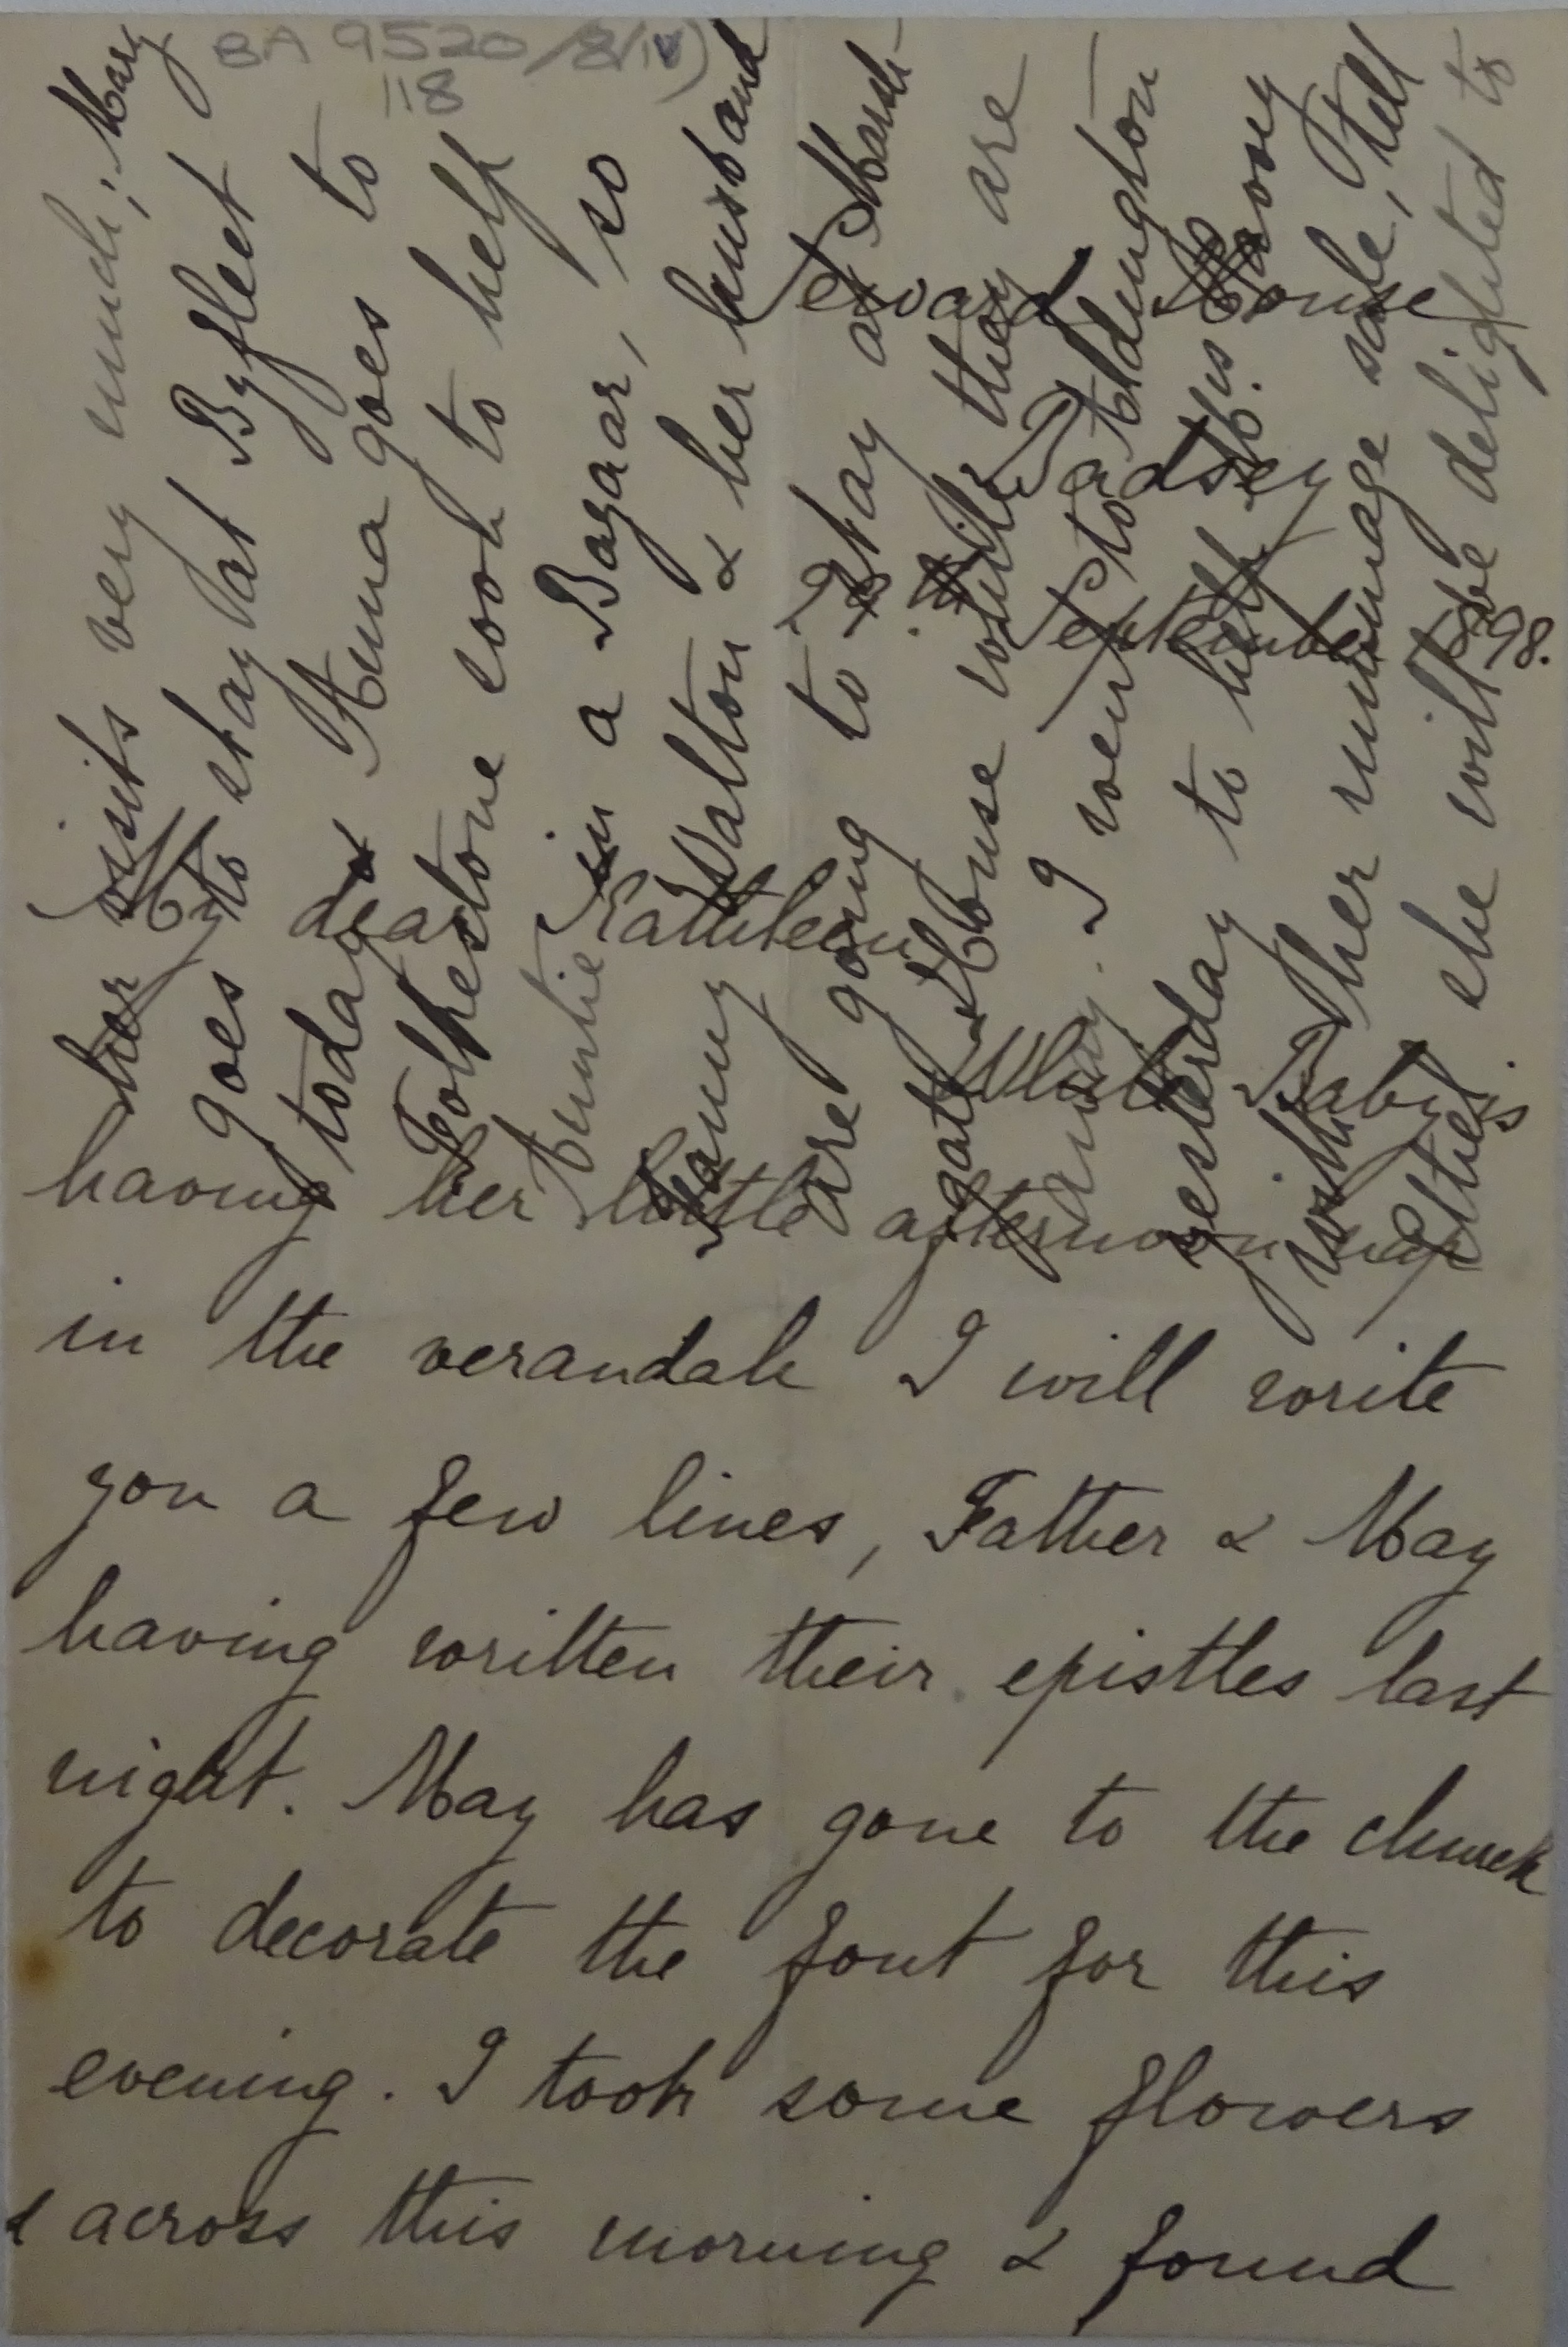 BA 9520/8(iv)
118
Seward House
Badsey
September 1898.
My dear Kathleen
While Baby is
having her little afternoon nap
in the verandah I will write
you a few lines, Father & May
having written their epistles last
night. May has gone to the church
to decorate the font for this
evening. I took some flowers
& across this morning & found
her visits very much; Mary
goes to stay at Byfleet to
today & Anna goes to
Folkestone soon to help
Auntie in a Bazaar, so
Fanny Walton & her husband
are going to stay at Marsh
gate House while they are
away. I went to Aldington
yesterday to help Mrs. Savory
with her rummage sale, tell
Ethel she will be delighted to